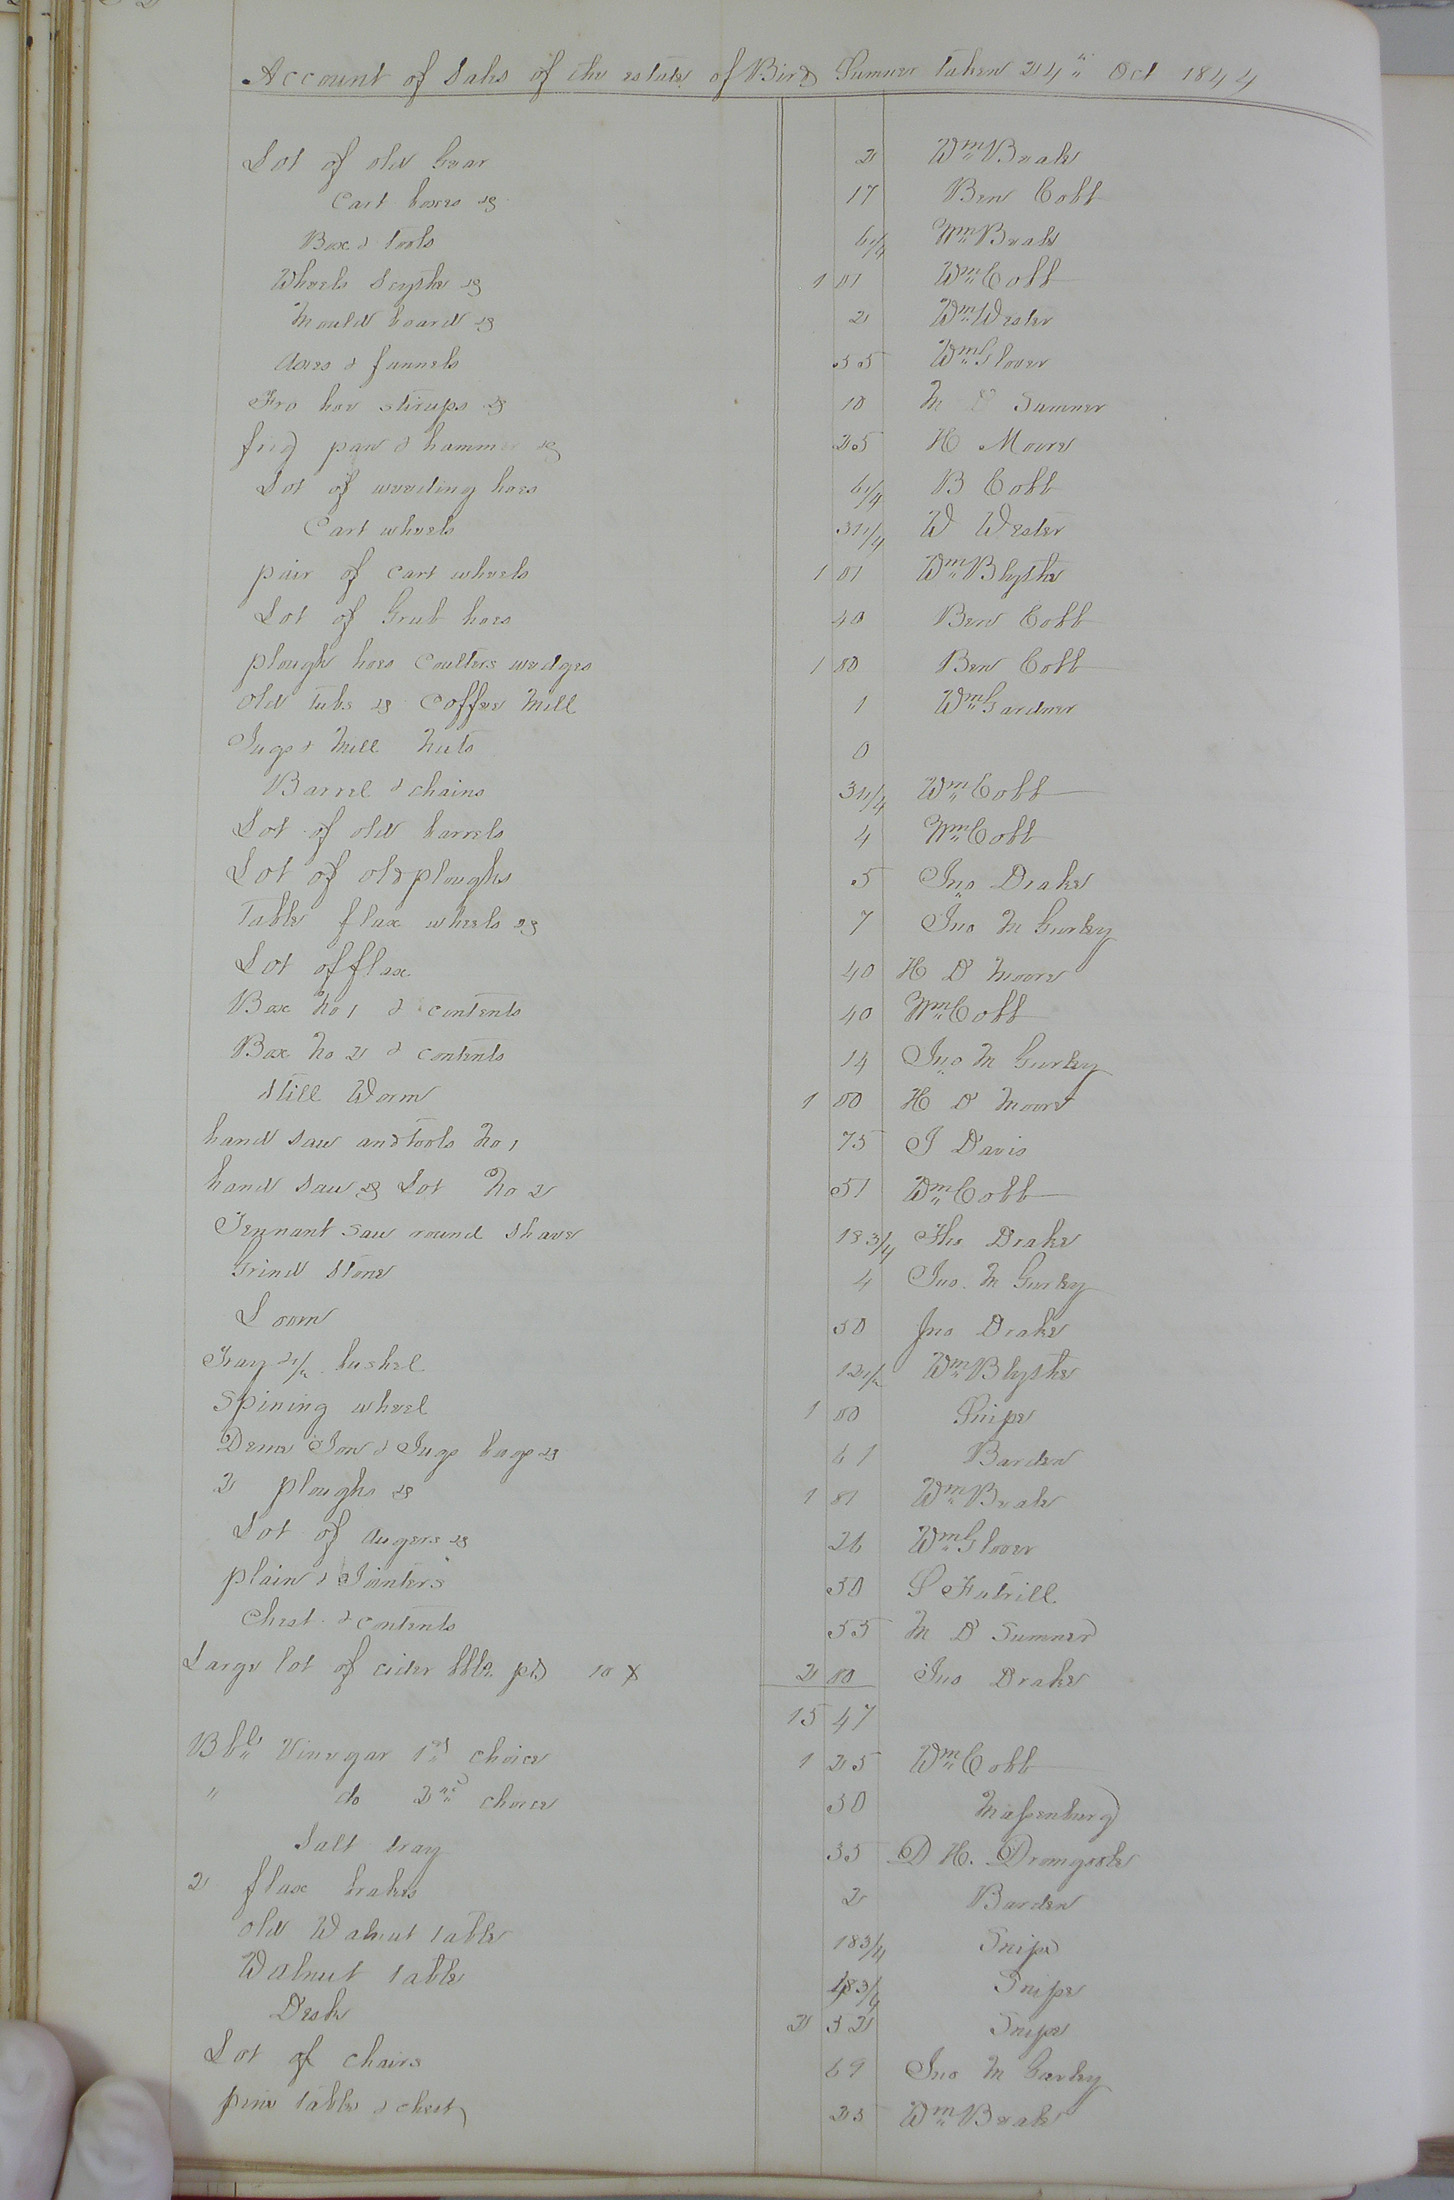 Account of Sales of the estate of Bird Sumner taken 24th Oct 1844
Lot of old Gear 2 Wm Beale
Cart boxes &c 17 Ben Cobb
Box & tools 6 1/4 Wm Beale
Wheels Scythe &c 1 01 Wm Cobb
Mould board &c 2 Wm Wester
Axes & funnels 55 Wm Glover
Fro hoe stirups &c 10 M D Sumner
fryg pan & hammer &c 25 H Moore
Lot of weeding hoes 6 1/4 B Cobb
Cart wheels 31 1/4 W Wester
pair of cart wheels 1 01 Wm Blythe
Lot of Grub hoes 40 Ben Cobb
plough hoes Coulters wedges 1 80 Ben Cobb
old tubs &c Coffee Mill 1 Wm Gardner
Jugs & Mill Nuts 0
Barrel & chains 31 1/4 Wm Cobb
Lot of old barrels 4 Wm Cobb
Lot of old ploughs 5 Jno Drake
Table flax wheels &c 7 Jno M Gurley
Lot of flax 40 H D Moore
Box No 1 & contents 40 Wm Cobb
Box No 2 & contents 14 Jno M Gurley
Still Worm 1 00 H D Moore
hand Saw and tools No 1 75 J Davis
hand Saw &c Lot No 2 51 Wm Cobb
Tennant Saw round Shave 18 3/4 Tho Drake
Grind Stone 4 Jno. M Gurley
Loom 50 Jno Drake
Tray 1/2 bushel 12 1/2 Wm Blythe
Spining wheel 1 00 Snipe
Deme Jon & Jugs bags &c 61 Barden
2 ploughs &c 1 81 Wm Beale
Lot of Augers &c 26 Wm Glover
plain & Jointers 50 S Futrill
Chest & contents 55 M D Sumner
Large lot of cider bbls. pd 10 X 2 00 Jno Drake
15 47
Bbls Vinegar 1st choice 1 25 Wm Cobb
" do 2nd choice 50 Massenburg
Salt tray 55 D H. Dromgoole
2 flax brakes 2 Barden
old Walnut table 18 3/4 Snipe
Walnut table 18 3/4 Snipe
Desk 2 52 Snipe
Lot of chairs 69 Jno M Gurley
pine table & chest 25 Wm Beale